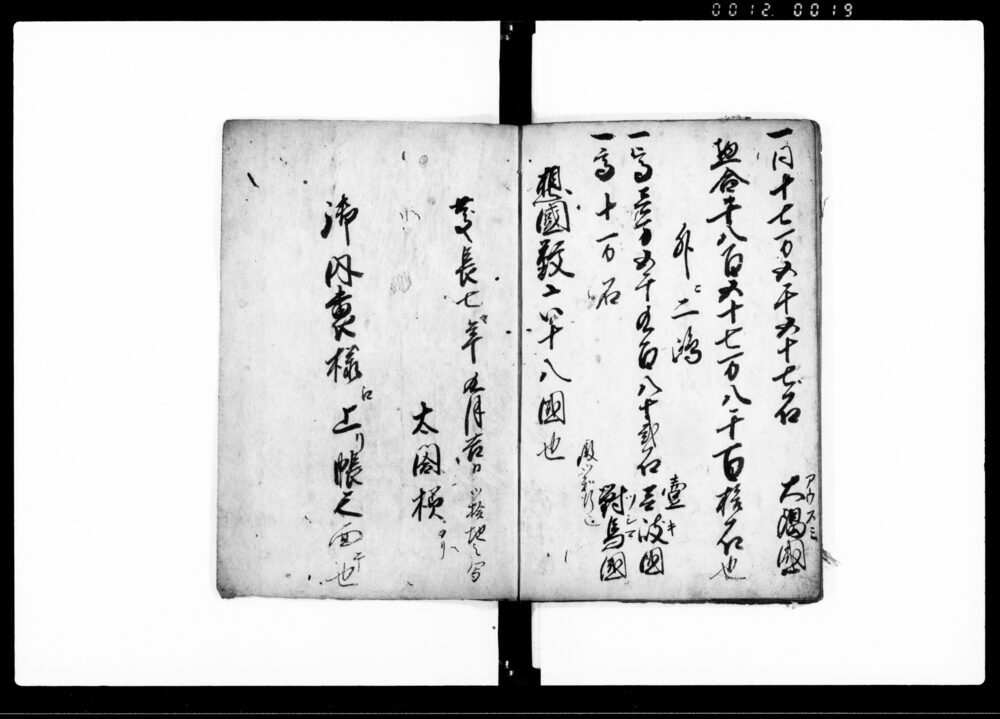 0012. 0019
一同十七万五千五十七石 大隅國
アウスミ
惣合千八百五十七万八千百拾石也
外ニ二嶋
一高壱万五千五百八十弐石 壹波國
壹キ
一高十一万石 對馬國
ツシマ
惣國数六十八國也
慶長七年 五月吉日 検地之写
太閤様ヨリ
御内裏様江 上リ帳之面 也